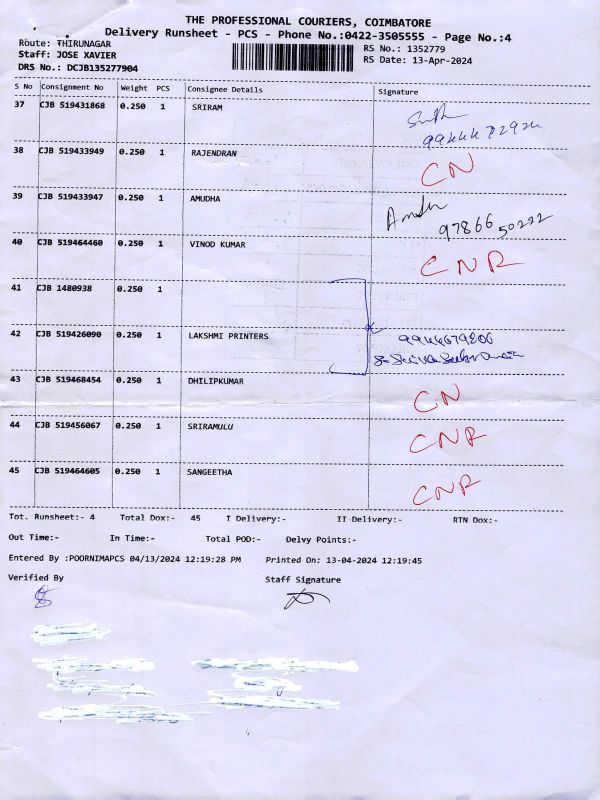 THE PROFESSIONAL COURIERS, COIMBATORE
Delivery Runsheet - PCS - Phone No.:0422-3505555 - Page No.:4
Route: THIRUNAGAR
Staff: JOSE XAVIER
DRS No.: DCJB135277904
RS No.: 1352779
RS Date: 13-Apr-2024
S No Consignment No Weight PCS Consignee Details Signature
37 CJB 519431868 0.250 1 SRIRAM
38 CJB 519433949 0.250 1 RAJENDRAN CN
39 CJB 519433947 0.250 1 AMUDHA 97866 50222
40 CJB 519464460 0.250 1 VINOD KUMAR CNR
41 CJB 1480938 0.250 1
42 CJB 519426090 0.250 1 LAKSHMI PRINTERS
43 CJB 519468454 0.250 1 DHILIPKUMAR CN
44 CJB 519456067 0.250 1 SRIRAMULU CNR
45 CJB 519464605 0.250 1 SANGEETHA CNR
Tot. Runsheet:- 4 Total Dox:- 45 I Delivery:- II Delivery:- RTN Dox:-
Out Time:- In Time:- Total POD:- Delvy Points:-
Entered By :POORNIMAPCS 04/13/2024 12:19:28 PM Printed On: 13-04-2024 12:19:45
Verified By Staff Signature